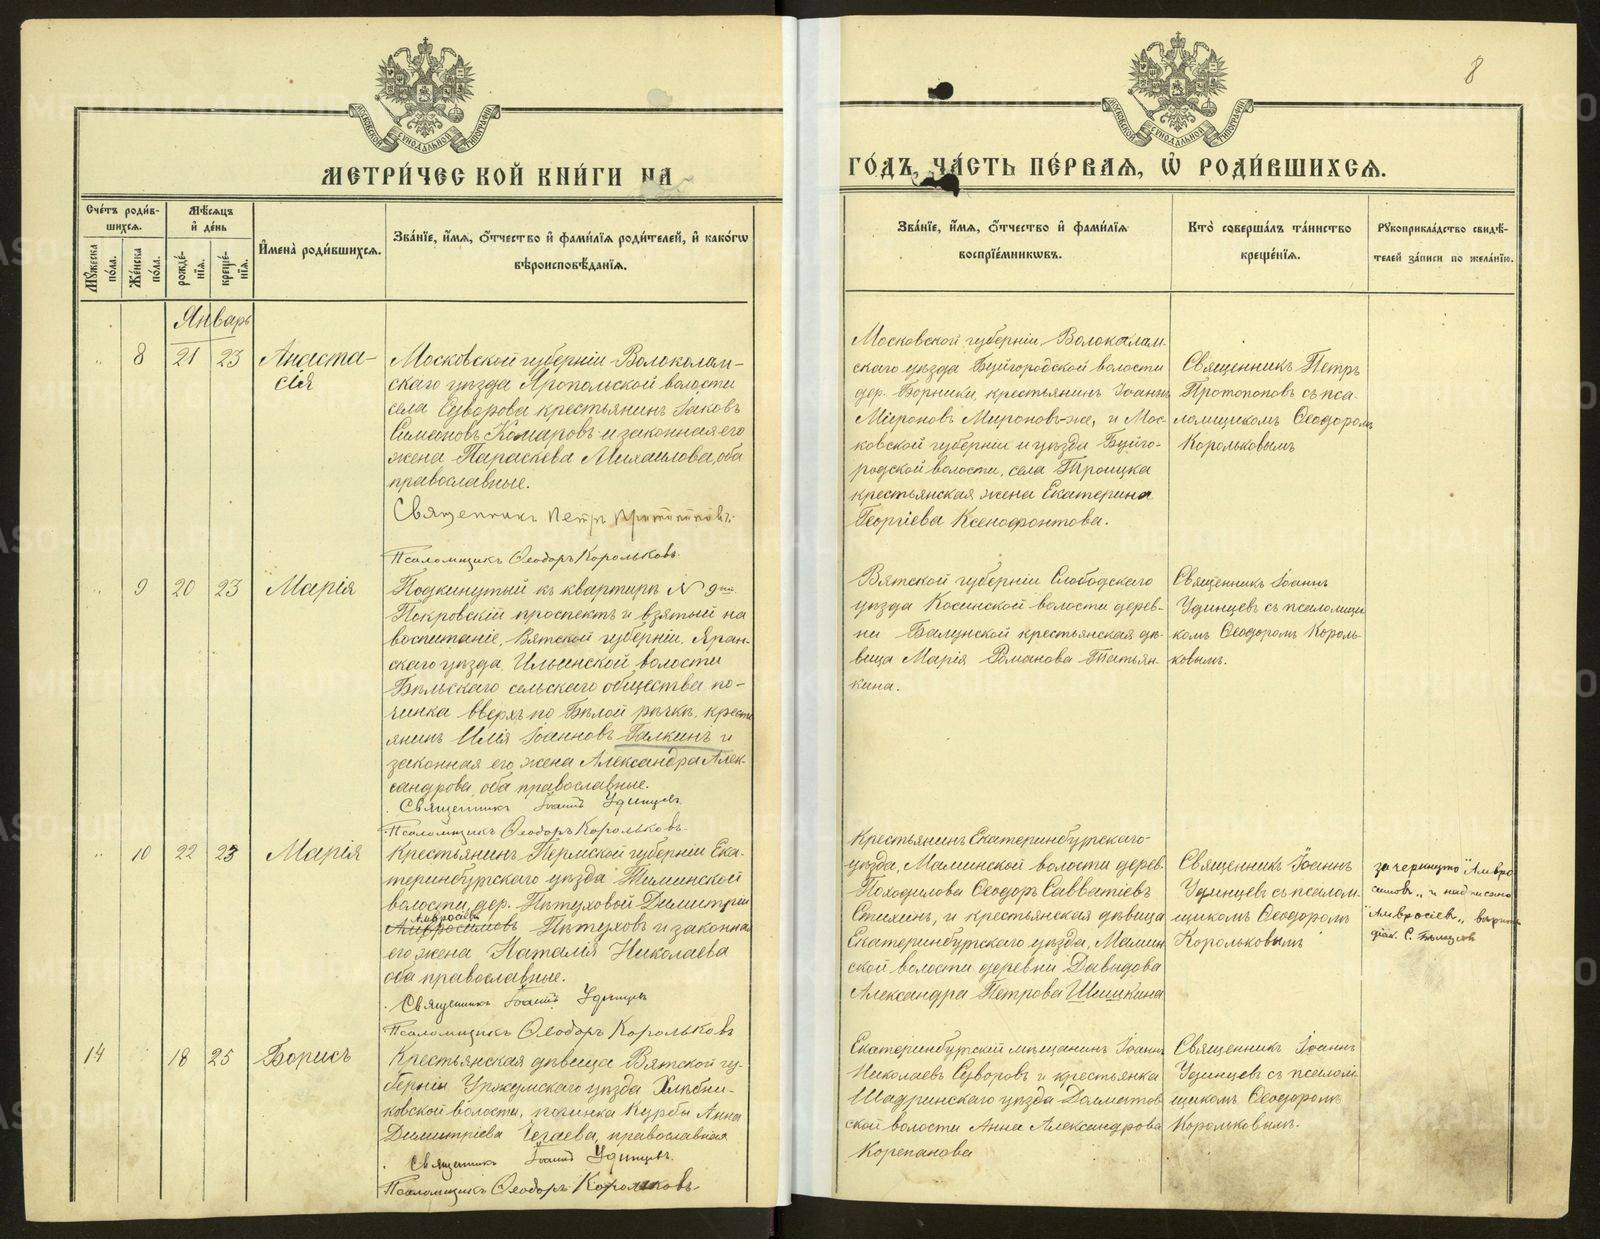 8
МОСКОВСКОЙ СѴНОДАЛЬНОЙ ТИПОГРАФІИ
МОСКОВСКОЙ СѴНОДАЛЬНОЙ ТИПОГРАФІИ
МЕТРИ́ЧЕСКОЙ КНИ́ГИ НА
ГО́ДЪ, ЧА́СТЬ ПЕ́РВАЯ, Ѡ҆ РОДИ́ВШИХСЯ.
Сче́тъ роди́в-
шихся.
Мѣ́сяцъ
и҆ де́нь
Мꙋ́жеска по́ла.
Же́нска по́ла.
рожде́-нїя.
креще́-нїя.
И҆мена̀ роди́вшихся.
Зва́нїе, и҆́мя, ѻ҆́тчество и҆ фами́лїя роди́телей, и҆ како́гѡ
вѣроисповѣ́данїя.
Зва́нїе, и҆́мя, ѻ҆́тчество и҆ фами́лїя
воспрїе́мникѡвъ.
Кто̀ соверша́лъ та́инство
креще́нїя.
Рꙋкоприкла́дство свидѣ́-
телей за́писи по жела́нїю.
Январь
8 21 23 Анаста-
сія
Московской губерніи Волоколам-
скаго уѣзда Яропольской волости
села Суворова крестьянинъ Іаковъ
Симеоновъ Комаровъ и законная его
жена Параскева Михаилова, оба
православные.
Священникъ Петръ Протопоповъ.
Псаломщикъ Ѳеодоръ Корольковъ.
Московской губерніи Волоколам
скаго уѣзда Буйгородской волости
дер. Борники, крестьянинъ Іоаннъ
Мироновъ Мироновъ-же, и Мос-
ковской губерніи и уѣзда Буйго-
родской волости, села Троицка
крестьянская жена Екатерина
Георгіева Ксенофонтова.
Священникъ Петръ
Протопоповъ съ пса-
ломщикомъ Ѳеодоромъ
Корольковымъ
9 20 23 Марія
Подкинутый къ квартирѣ № 9й
Покровскій проспектъ и взятый на
воспитаніе, Вятской губерніи, Яран-
скаго уѣзда, Ильинской волости
Бѣльскаго сельскаго общества по-
чинка вверхъ по Бѣлой рѣчкѣ, кресть
янинъ Илія Іоанновъ Галкинъ и
законная его жена Александра Алек-
сандрова, оба православные.
Священникъ Іоаннъ Удинцевъ
Псаломщикъ Ѳеодоръ Корольковъ.
Вятской губерніи Слободскаго
уѣзда Косинской волости дерев-
ни Балунской крестьянская дѣ-
вица Марія Романова Татьян-
кина.
Священникъ Іоаннъ
Удинцевъ съ псаломщи-
комъ Ѳеодоромъ Король-
ковымъ.
10 22 23 Марія
Крестьянинъ Пермской губерніи Ека-
теринбургскаго уѣзда Тиминской
волости, дер. Пѣтуховой Димитрій
Амвросіевъ
Амвросимовъ Пѣтуховъ и законная
его жена Наталія Николаева
оба православные.
Священникъ Іоаннъ Удинцевъ
Псаломщикъ Ѳеодоръ Корольковъ
Крестьянинъ Екатеринбургскаго
уѣзда, Маминской волости дерев.
Походилова Ѳеодоръ Савватіевъ
Стихинъ, и крестьянская дѣвица
Екатеринбургскаго уѣзда, Мамин
ской волости деревни Давыдова
Александра Петрова Шишкина
Священникъ Іоаннъ
Удинцевъ съ псалом-
щикомъ Ѳеодоромъ
Корольковымъ
зачеркнуто "Амвро
симовъ" и надписано
"Амвросіевъ" вѣрно
діак. С.
14 18 25 Борисъ
Крестьянская дѣвица Вятской гу-
берніи Уржумскаго уѣзда Хлѣбни-
ковской волости, починка Курбы Анна
Димитріева Чегаева, православная
Священникъ Іоаннъ Удинцевъ.
Псаломщикъ Ѳеодоръ Корольковъ.
Екатеринбургскій мѣщанинъ Іоаннъ
Николаевъ Суворовъ и крестьянка
Шадринскаго уѣзда Долматов
ской волости Анна Александрова
Корепанова
Священникъ Іоаннъ
Удинцевъ съ псалом-
щикомъ Ѳеодоромъ
Корольковымъ.